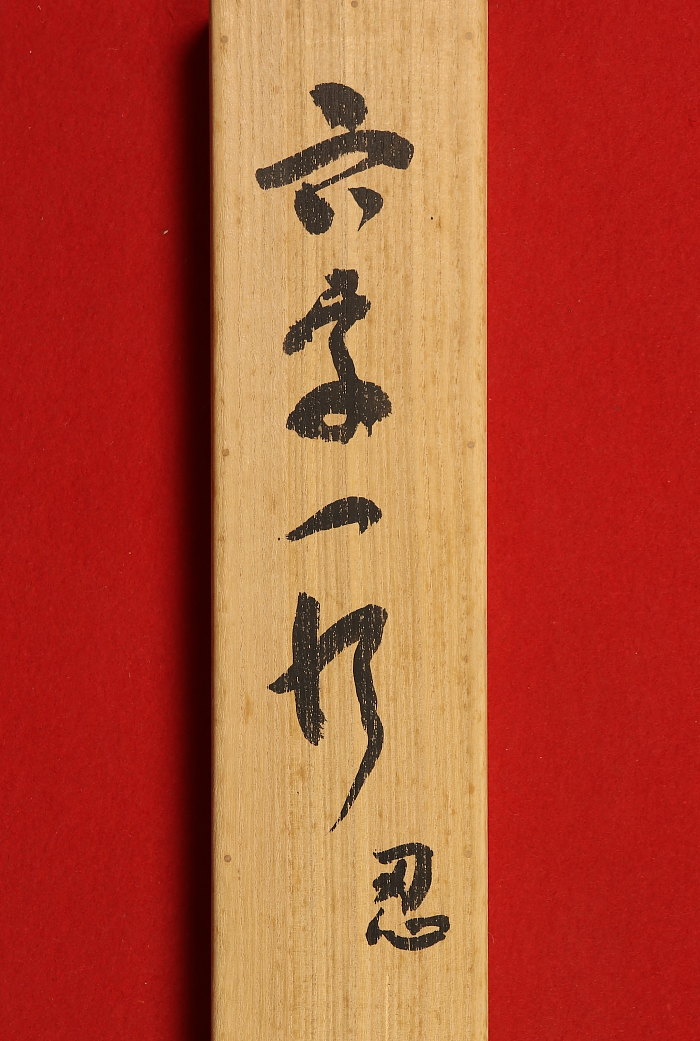 六字一行
忍